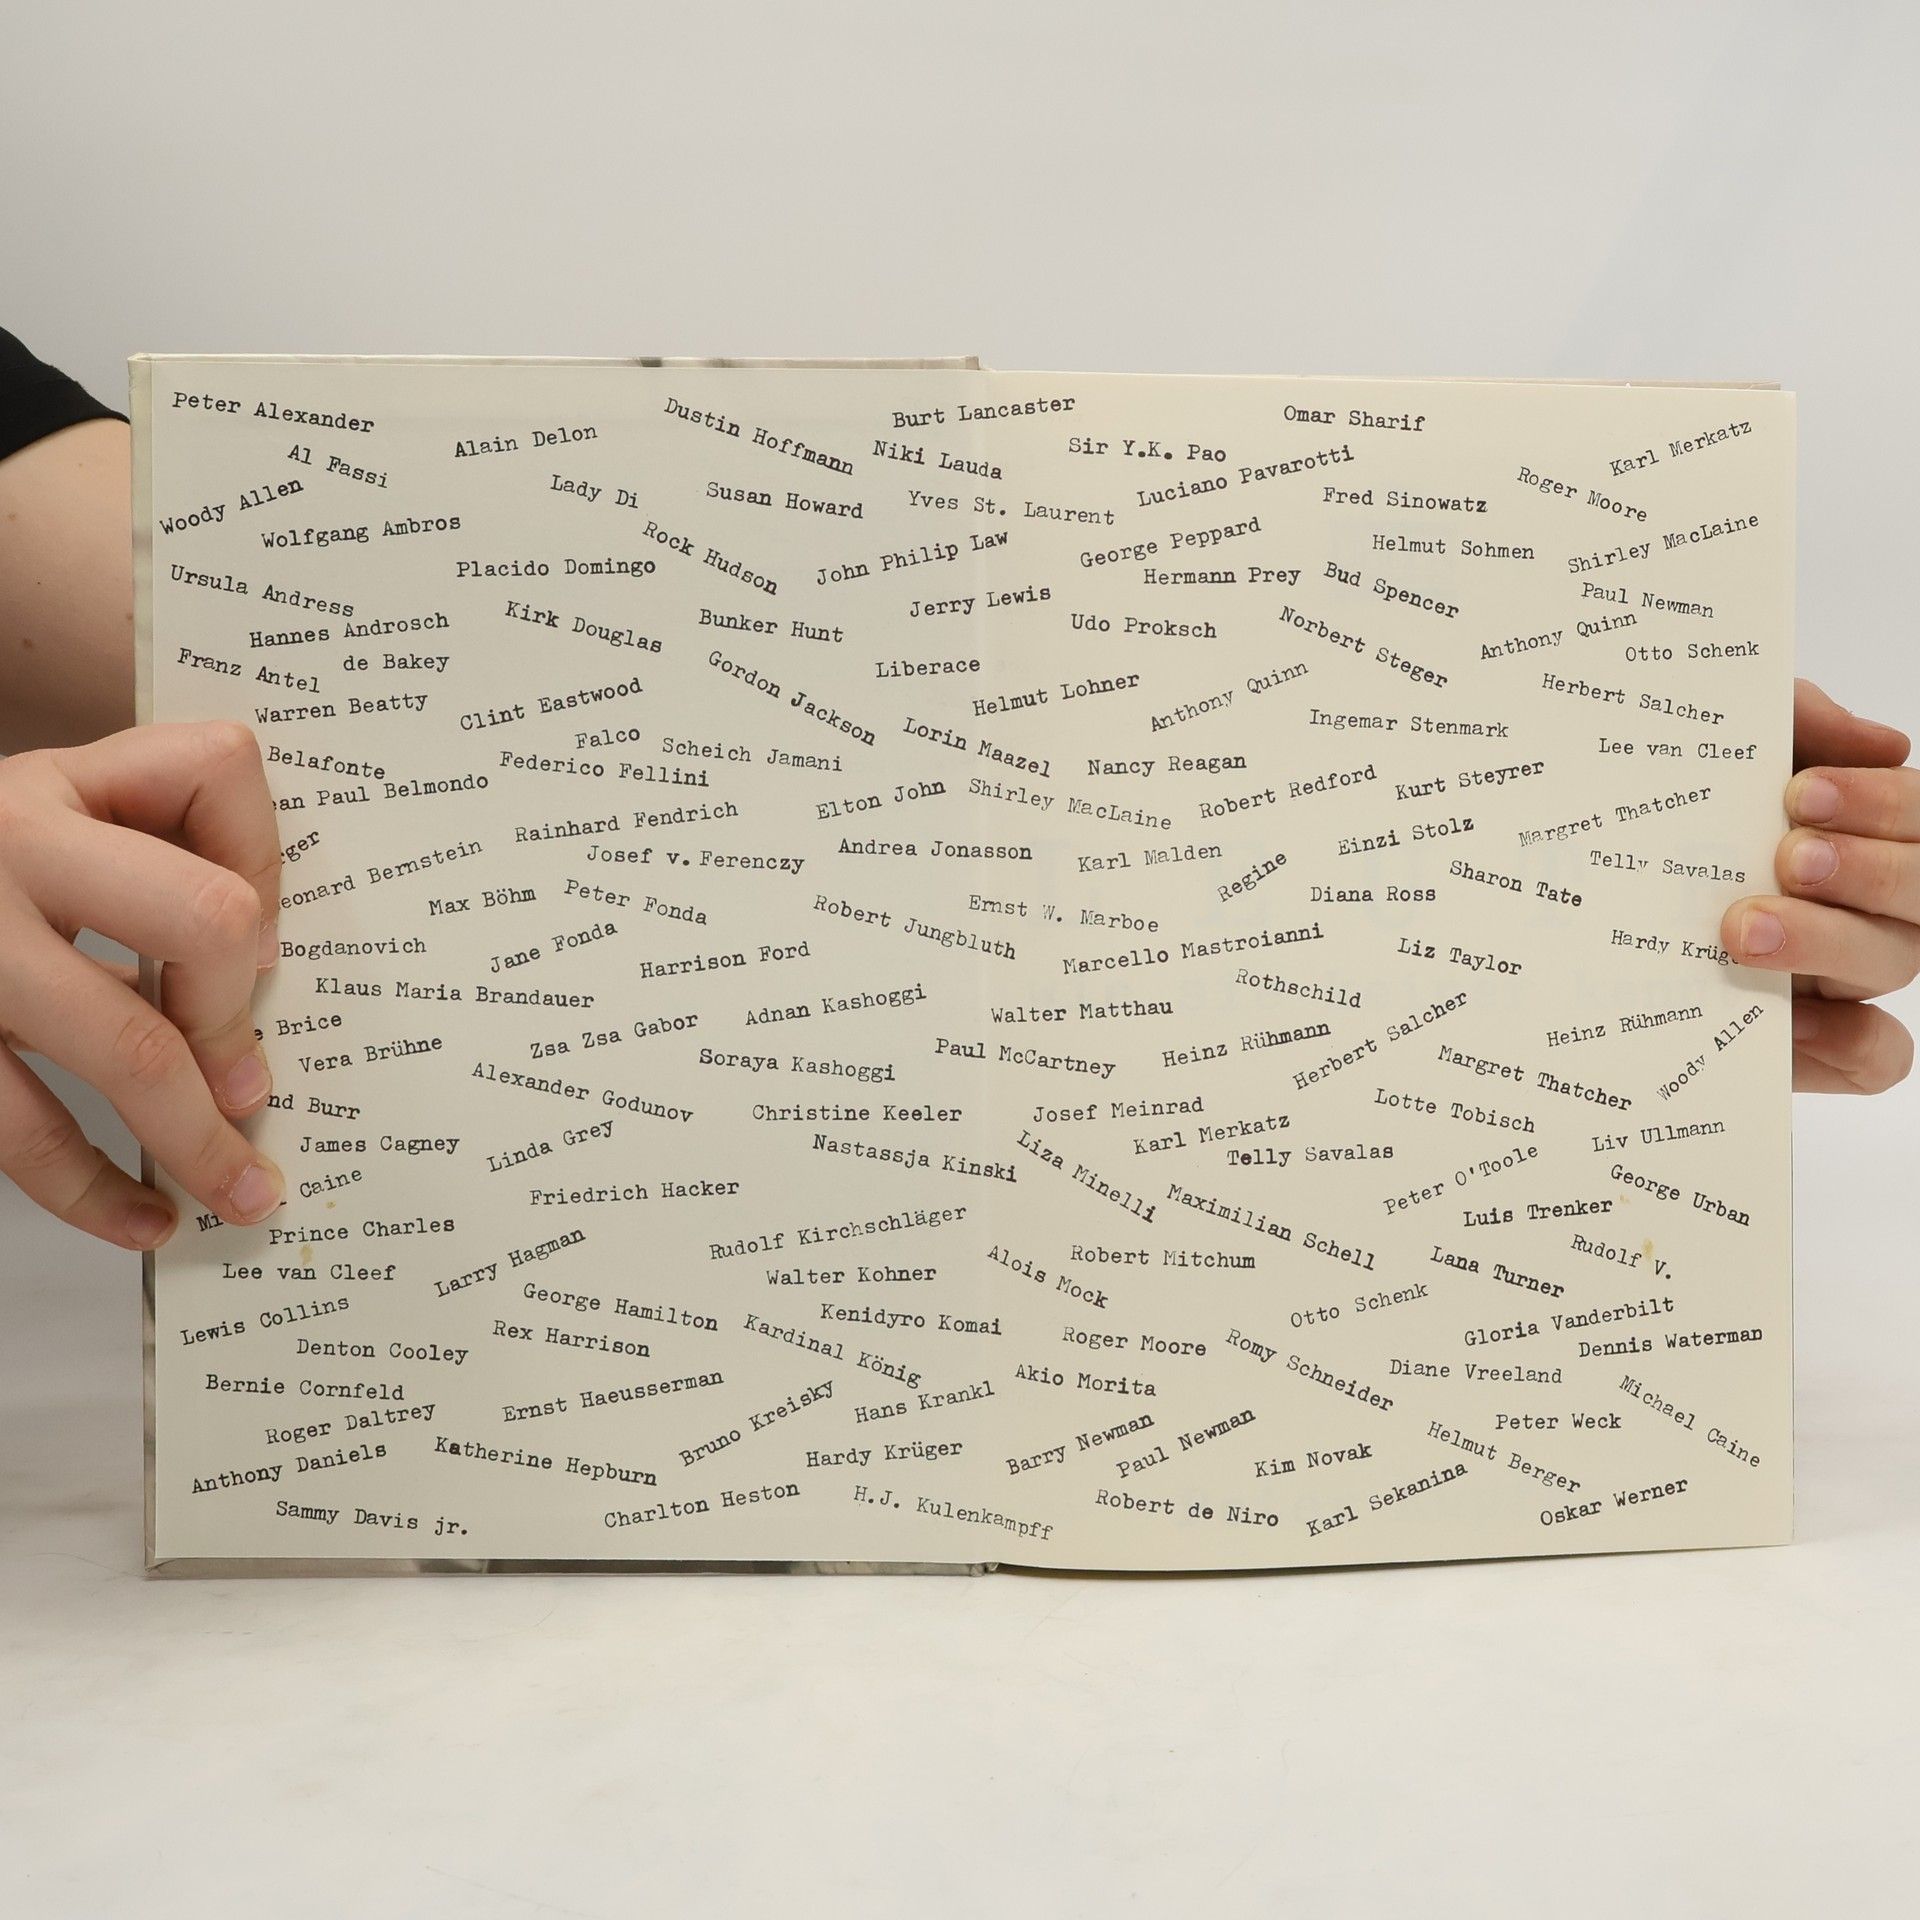 Peter Alexander
Dustin Hoffmann
Burt Lancaster
Omar Sharif
Karl Merkatz
Al Fassi
Alain Delon
Niki Lauda
Sir Y.K. Pao
Luciano Pavarotti
Roger Moore
Woody Allen
Lady Di
Susan Howard
Yves St. Laurent
Fred Sinowatz
Wolfgang Ambros
Rock Hudson
John Philip Law
George Peppard
Helmut Sohmen
Shirley MacLaine
Ursula Andress
Placido Domingo
Hermann Prey
Bud Spencer
Paul Newman
Hannes Androsch
Kirk Douglas
Bunker Hunt
Jerry Lewis
Udo Proksch
Norbert Steger
Anthony Quinn
Otto Schenk
Franz Antel
de Bakey
Gordon Jackson
Liberace
Helmut Lohner
Anthony Quinn
Herbert Salcher
Warren Beatty
Clint Eastwood
Lorin Maazel
Ingemar Stenmark
Lee van Cleef
Belafonte
Falco
Scheich Jamani
Federico Fellini
Nancy Reagan
Paul Belmondo
Elton John
Shirley MacLaine
Robert Redford
Kurt Steyrer
Margret Thatcher
Rainhard Fendrich
Josef v. Ferenczy
Andrea Jonasson
Karl Malden
Einzi Stolz
Telly Savalas
Bernstein
Max Böhm
Peter Fonda
Robert Jungbluth
Ernst W. Marboe
Regine
Diana Ross
Sharon Tate
Bogdanovich
Jane Fonda
Harrison Ford
Marcello Mastroianni
Liz Taylor
Hardy
Klaus Maria Brandauer
Adnan Kashoggi
Walter Matthau
Rothschild
Brice
Vera Brühne
Zsa Zsa Gabor
Soraya Kashoggi
Paul McCartney
Heinz Rühmann
Herbert Salcher
Heinz Rühmann
Margret Thatcher
Woody Allen
Burr
Alexander Godunov
Christine Keeler
Josef Meinrad
Karl Merkatz
Lotte Tobisch
James Cagney
Linda Grey
Nastassja Kinski
Liza Minelli
Telly Savalas
Liv Ullmann
Caine
Friedrich Hacker
Maximilian Schell
Peter O'Toole
George Urban
Prince Charles
Rudolf Kirchschläger
Luis Trenker
Lee van Cleef
Larry Hagman
Walter Kohner
Alois Mock
Robert Mitchum
Lana Turner
Rudolf V.
Lewis Collins
George Hamilton
Kenidyro Komai
Otto Schenk
Gloria Vanderbilt
Denton Cooley
Rex Harrison
Kardinal König
Roger Moore
Romy Schneider
Dennis Waterman
Bernie Cornfeld
Ernst Haeusserman
Akio Morita
Diane Vreeland
Michael Caine
Roger Daltrey
Bruno Kreisky
Hans Krankl
Peter Weck
Anthony Daniels
Katherine Hepburn
Hardy Krüger
Barry Newman
Paul Newman
Kim Novak
Helmut Berger
Sammy Davis jr.
Charlton Heston
H.J. Kulenkampff
Robert de Niro
Karl Sekanina
Oskar Werner